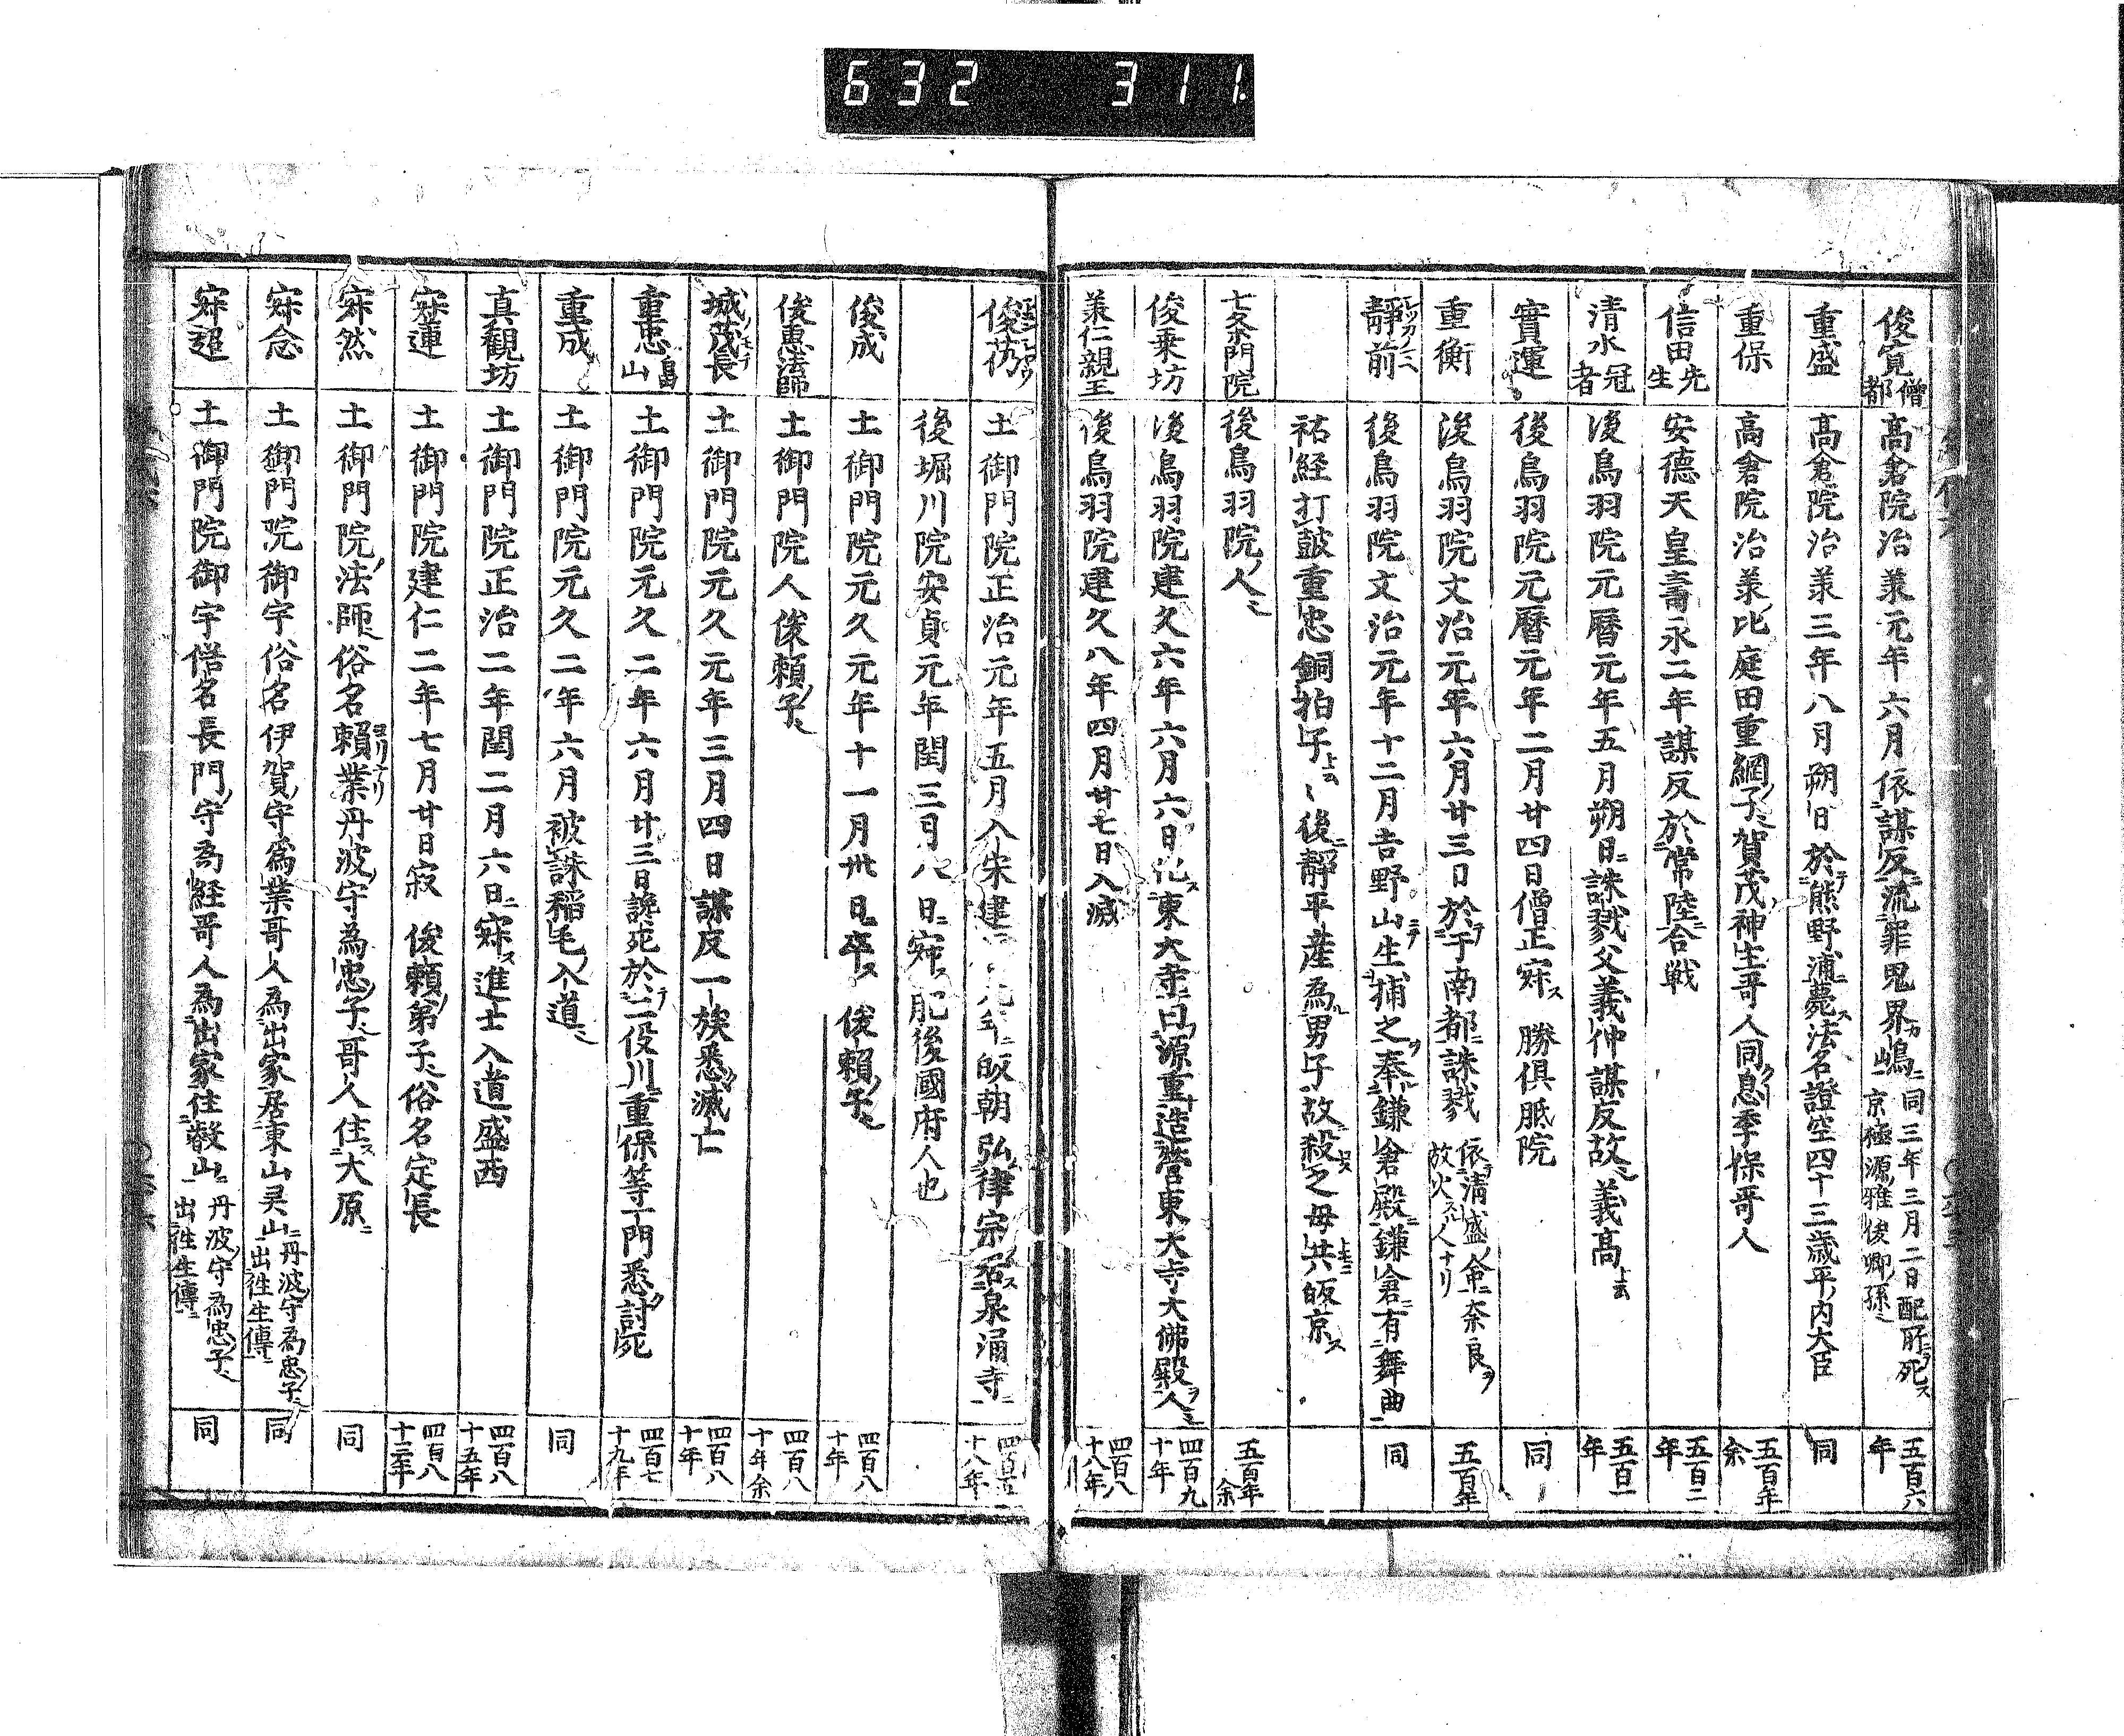 632 311.
俊寛 僧都 高倉院治羕元年六月依謀反流罪鬼界カ嶋 同三年三月二日配所ニテ死ス 京極源雅俊卿ノ孫 五百六年
重盛 髙倉院治羕三年八月朔日於熊野浦薨ス法名證空四十三歳平ノ内大臣 同
重保 高倉院治羕比庭田重網ノ子賀茂神生哥人同息季保哥人 五百年余
信田先生 安德天皇壽永二年謀反於常陸合戦 五百二年
清水冠者 後鳥羽院元曆元年五月朔日誅戮父義仲謀反故義髙上云 五百一年
實運 後鳥羽院元曆元年二月廿四日僧正寂ス 勝俱胝院 同
重衡 後鳥羽院文治元年六月廿三日於于南都誅戮 依清盛命奈良ヲ 放火ス人ナリ 五百年
靜前 後鳥羽院文治元年十二月吉野山ニテ生捕之奉鎌倉殿鎌倉有舞曲 同
祐経打鼓重忠銅拍子上云後靜平産為男子故殺之母共皈京ス
七条門院 後鳥羽院ノ人 五百年余
俊乗坊 後鳥羽院建久六年六月六日化ス東大寺曰源重造營東大寺大佛殿人 四百九十年
羕仁親王 後鳥羽院建久八年四月廿七日入滅 四百八十八年
俊芿 土御門院正治元年五月入宋建 年皈朝弘律宗 泉涌寺
後堀川院安貞元年閏三月八日寂ス肥後國府人也
俊成 土御門院元久元年十一月卅日卒ス 俊賴ノ子 四百八十年
俊惠法師 土御門院人俊賴ノ子 四百八十年余
城ノ茂長 土御門院元久元年三月四日謀反一族悉滅亡 四百八十年
重忠 畠山 土御門院元久二年六月廿三日讒死於二役川重保等一門悉討死 四百七十九年
重成 土御門院元久二年六月被誅稲毛ノ入道 同
真觀坊 土御門院正治二年閏二月六日寂ス進士入道盛西 四百八十五年
寂蓮 土御門院建仁二年七月廿日寂 俊賴ノ弟子俗名定長 四百八十三年
寂然 土御門院ノ法師俗名賴業丹波ノ守為忠ノ子哥人住ス大原 同
寂念 土御門院御宇俗名伊賀ノ守為業哥人為出家居東山灵山 丹波ノ守為忠ノ子 出往生傳 同
寂超 土御門院御宇俗名長門ノ守為経哥人為出家住叡山 丹波ノ守為忠ノ子 出往生傳 同